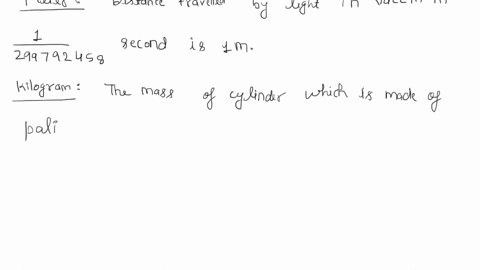 Distance travelled by light in vaccum in
1/299792458 second is 1m.
Kilogram: The mass of cylinder which is made of
pali